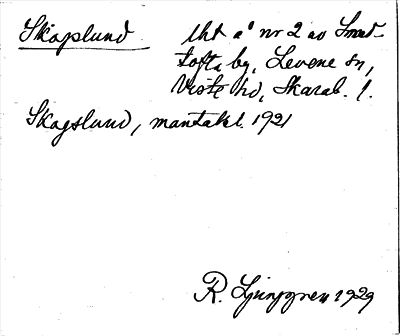 Skogslund lht å nr 2 av Smed-
tofta by, Levene sn,
Viste hd, Skarab. l.
Skogslund, mantalsl. 1921
R. Ljunggren 1929